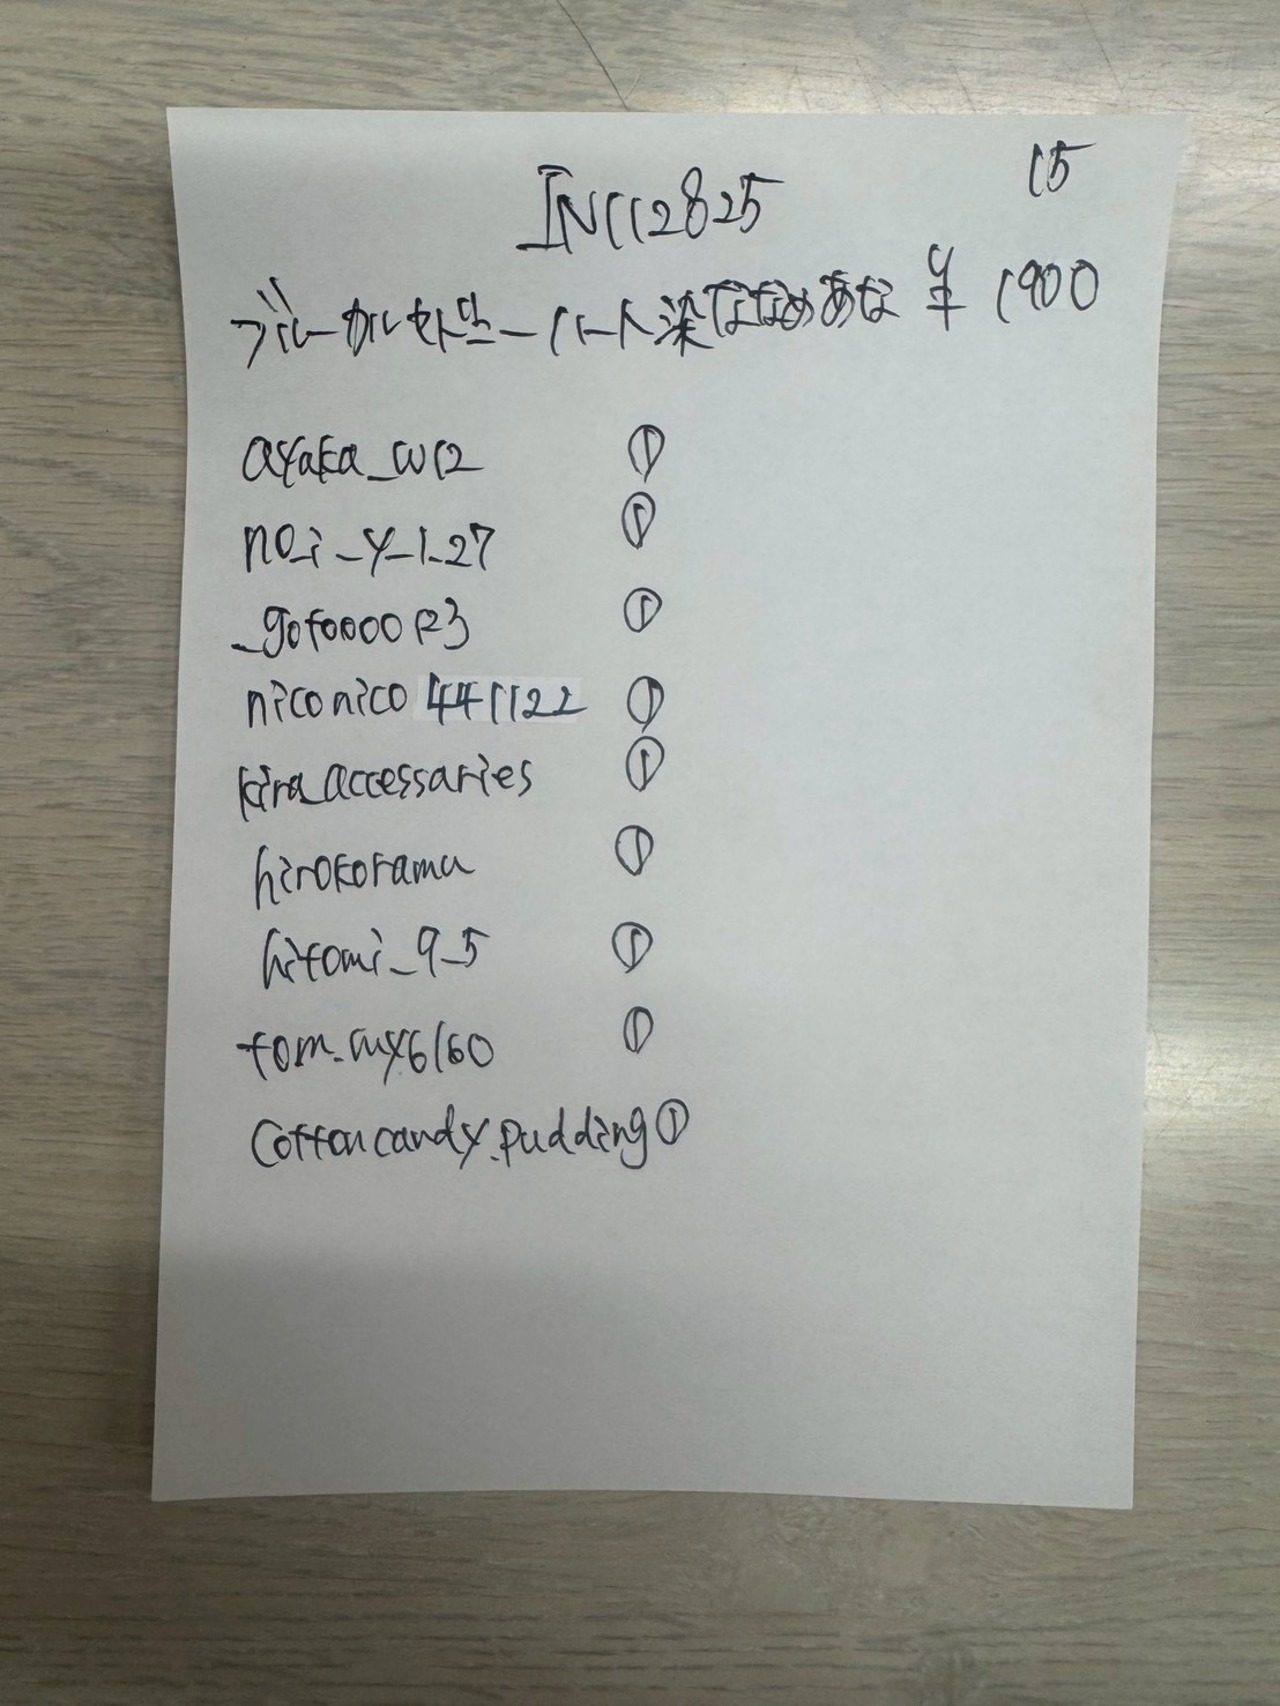 15
IN112825
ブルーカルセドニーハート染ななめあな ¥ 1900
ayaka_w12 ①
no.i_y_1.27 ①
_gotoooo123 ①
niconico441122 ①
kira_accessaries ①
hirokorama ①
hitomi_9_5 ①
tom.my6160 ①
cottoncandy.pudding①